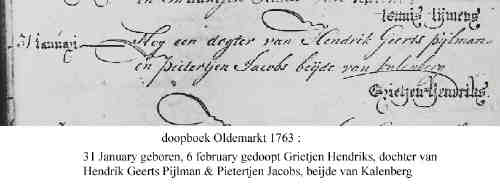 teunis tijmens
31 january Nog een dogter van Hendrik Geerts pijlman
en pietertjen Jacobs beijde van kalenberg
Grietjen Hendriks.
doopboek Oldemarkt 1763 :
31 January geboren, 6 february gedoopt Grietjen Hendriks, dochter van
Hendrik Geerts Pijlman & Pietertjen Jacobs, beijde van Kalenberg